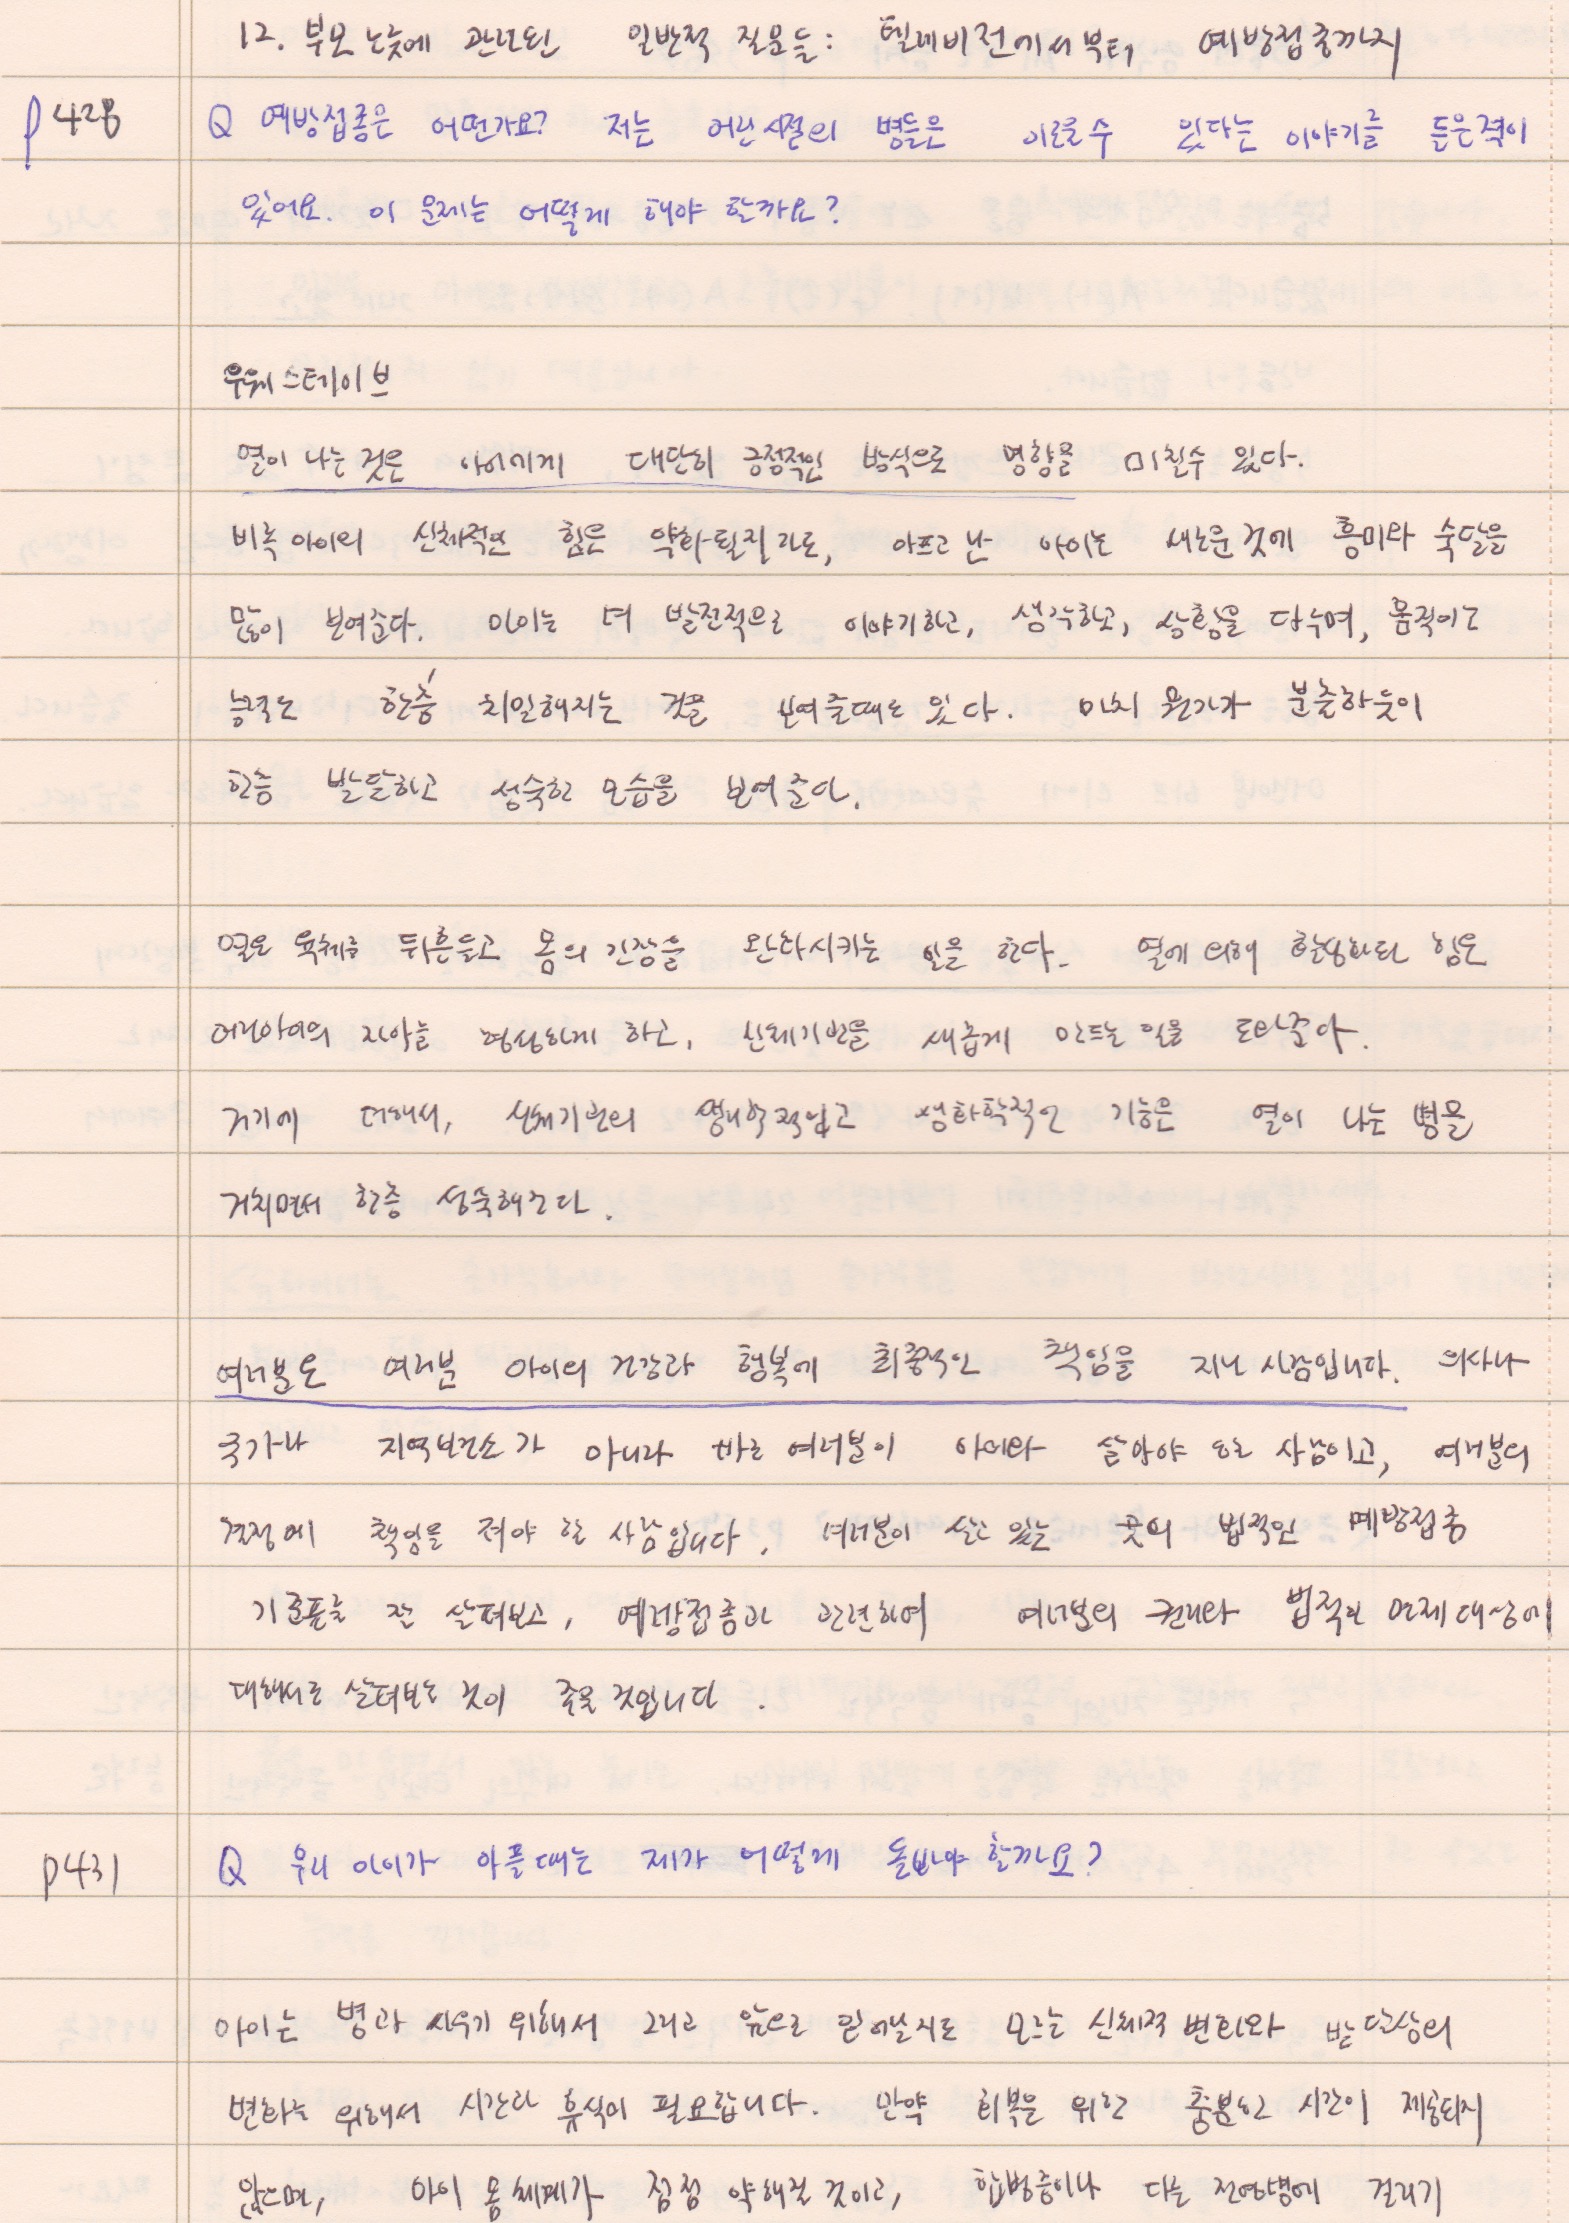 12. 부모 노릇에 관련된 일반적 질문들: 텔레비전에서부터 예방접종까지
p428 Q 예방접종은 어떤가요? 저는 어린시절의 병들은 이로울수 있다는 이야기를 들은적이
있어요. 이 문제는 어떻게 해야 할까요?
우웨 스테이브
열이 나는 것은 아이에게 대단히 긍정적인 방식으로 영향을 미칠수 있다.
비록 아이의 신체적인 힘은 약화될지라도, 아프고 난 아이는 새로운것에 흥미와 숙달을
많이 보여준다. 아이는 더 발전적으로 이야기하고, 생각하고, 상황을 다루며, 움직이는
능력도 한층 치밀해지는 것을 보여줄때도 있다. 마치 뭔가가 분출하듯이
한층 발달하고 성숙한 모습을 보여준다.
열은 육체를 뒤흔들고 몸의 긴장을 완화시키는 일을 한다. 열에 의해 활성화된 힘은
어린아이의 자아를 왕성하게 하고, 신체기관을 새롭게 만드는 일을 도와준다.
거기에 더해서, 신체기관의 생리학적이고 생화학적인 기능은 열이 나는 병을
거치면서 한층 성숙해진다.
여러분은 여러분 아이의 건강과 행복에 최종적인 책임을 지닌 사람입니다. 의사나
국가나 지역보건소가 아니라 바로 여러분이 아이와 살아야 할 사람이고, 여러분의
결정에 책임을 져야 할 사람입니다. 여러분이 살고 있는 곳의 법적인 예방접종
기준표를 잘 살펴보고, 예방접종과 관련하여 여러분의 권리와 법적인 면제대상에
대해서도 살펴보는 것이 좋을 것입니다.
p431 Q 우리 아이가 아플때는 제가 어떻게 돌봐야 할까요?
아이는 병과 싸우기 위해서 그리고 앞으로 일어날지도 모르는 신체적 변화와 발달상의
변화를 위해서 시간과 휴식이 필요합니다. 만약 회복을 위한 충분한 시간이 제공되지
않으며, 아이 몸 체계가 점점 약해질 것이고, 합병증이나 다른 전염병에 걸리기